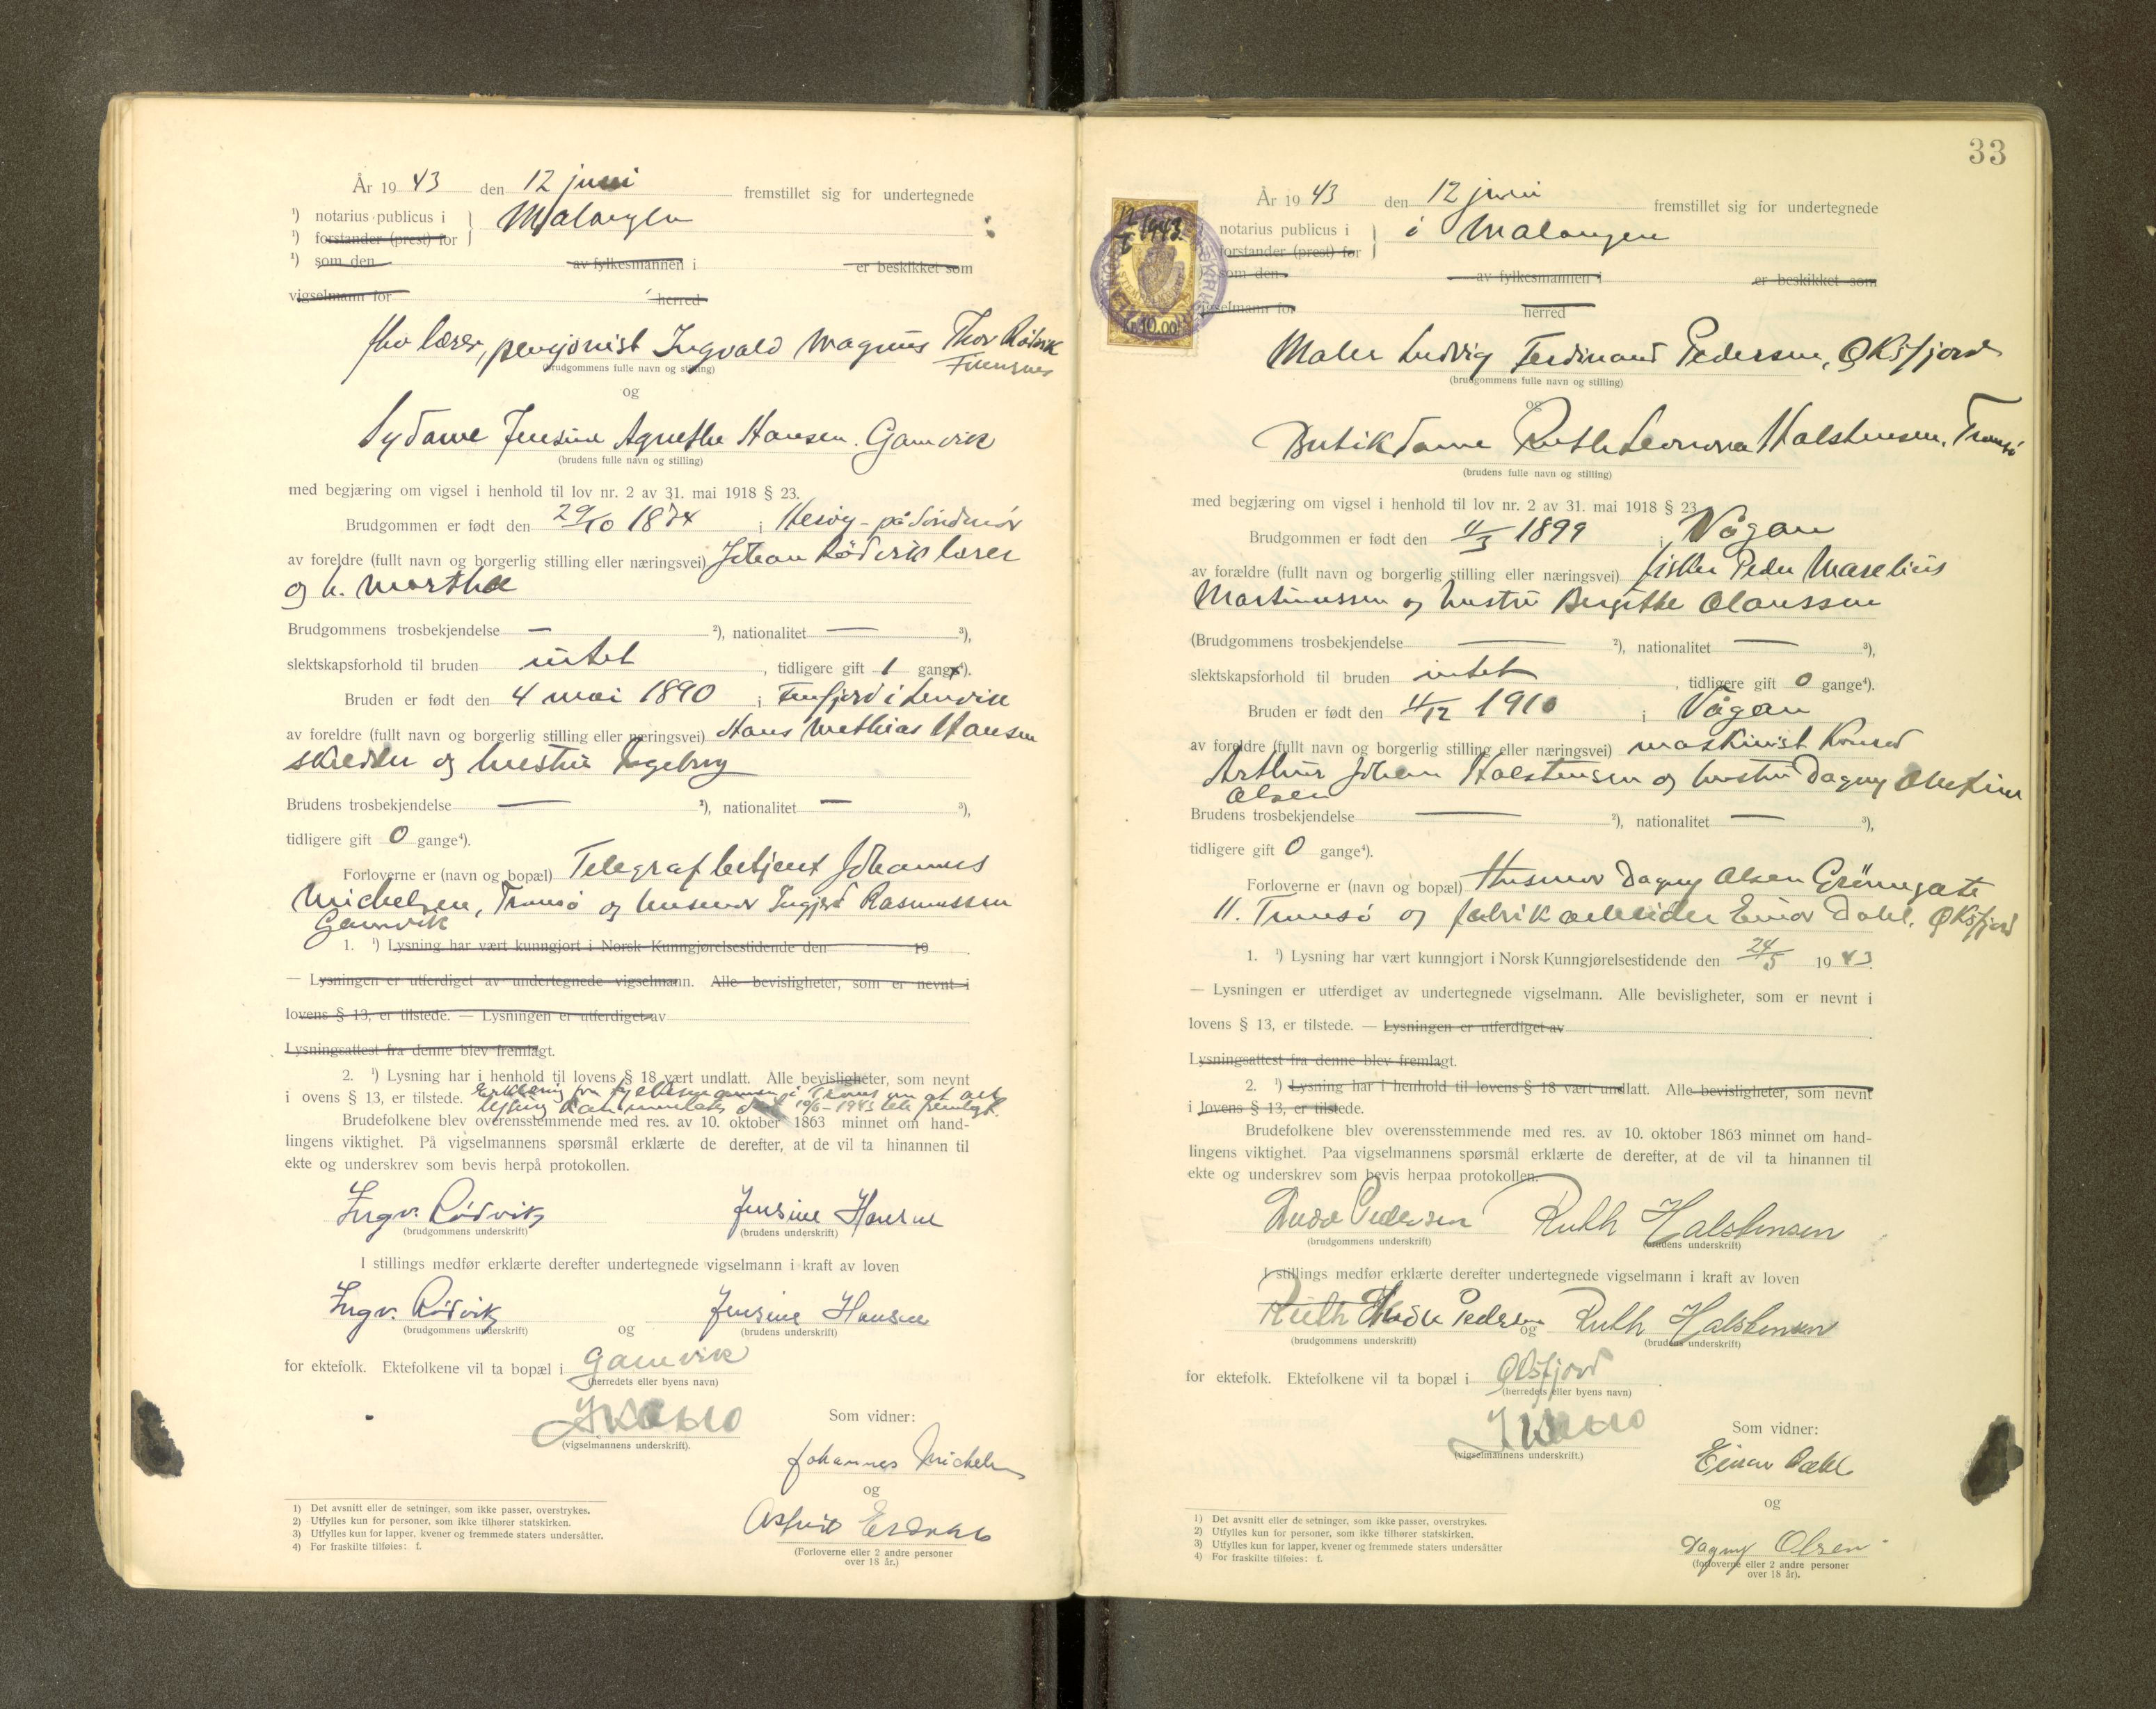 År 19 43 den 12 juni fremstillet sig for undertegnede
¹) notarius publicus i } Malangen
¹) forstander (prest) for
¹) som den av fylkesmannen i er beskikket som
vigselmann for herred
fhv lærer, pensjonist Ingvald Magnus Thor Rödvik
Finnsnes
(brudgommens fulle navn og stilling)
og
Sydame Jensine Agnethe Hansen. Gamvik
(brudens fulle navn og stilling)
med begjæring om vigsel i henhold til lov nr. 2 av 31. mai 1918 § 23.
Brudgommen er født den 29/10 1874 i Herøy - på Söndmör
av foreldre (fullt navn og borgerlig stilling eller næringsvei) Johan Rödvik lærer
og h. Martha
Brudgommens trosbekjendelse — ²), nationalitet — ³),
slektskapsforhold til bruden intet, tidligere gift 1 gang⁴).
Bruden er født den 4 mai 1890 i i Lenvik
av foreldre (fullt navn og borgerlig stilling eller næringsvei) Hans Mathias Hansen
skredder og hustru Ingeborg
Brudens trosbekjendelse — ²), nationalitet — ³),
tidligere gift 0 gange⁴).
Forloverne er (navn og bopæl) Telegrafbetjent Johannes
Michelsen, Tromsø og husmor Ingjerd Rasmussen
Gamvik
1. ¹) Lysning har vært kunngjort i Norsk Kunngjørelsestidende den 19 .
— Lysningen er utferdiget av undertegnede vigselmann. Alle bevisligheter, som er nevnt i
lovens § 13, er tilstede. — Lysningen er utferdiget av
Lysningsattest fra denne blev fremlagt.
2. ¹) Lysning har i henhold til lovens § 18 vært undlatt. Alle bevisligheter, som nevnt
i ovens § 13, er tilstede. Erklæring fra fylkesmannen i Troms om at
lysning kan unnlates dat 10/6-1943 ble fremlagt.
Brudefolkene blev overensstemmende med res. av 10. oktober 1863 minnet om hand-
lingens viktighet. På vigselmannens spørsmål erklærte de derefter, at de vil ta hinannen til
ekte og underskrev som bevis herpå protokollen.
Ingv. Rödvik Jensine Hansen
(brudgommens underskrift) (brudens underskrift)
I stillings medfør erklærte derefter undertegnede vigselmann i kraft av loven
Ingv. Rödvik og Jensine Hansen
(brudgommens underskrift) (brudens underskrift)
for ektefolk. Ektefolkene vil ta bopæl i Gamvik
(herredets eller byens navn)
(vigselmannens underskrift).
Som vidner:
Johannes Michelsen
og
Astrid
(Forloverne eller 2 andre personer
over 18 år.)
1) Det avsnitt eller de setninger, som ikke passer, overstrykes.
2) Utfylles kun for personer, som ikke tilhører statskirken.
3) Utfylles kun for lapper, kvener og fremmede staters undersåtter.
4) For fraskilte tilføies: f.
33
12/6 1943.
Kr. 10.00
År 19 43 den 12 juni fremstillet sig for undertegnede
notarius publicus i } i Malangen
forstander (prest) for
som den av fylkesmannen i er beskikket som
vigselmann for herred
Maler Ludvig Ferdinand Pedersen, Øksfjord
(brudgommens fulle navn og stilling)
og
Butikdame Ruth Leonora Halstensen, Tromsø
(brudens fulle navn og stilling)
med begjæring om vigsel i henhold til lov nr. 2 av 31. mai 1918 § 23.
Brudgommen er født den 11/3 1899 i Vågan
av forældre (fullt navn og borgerlig stilling eller næringsvei) fisker Peder Marelius
Martinussen og hustru Bergitte Olaussen
(Brudgommens trosbekjendelse — ²), nationalitet — ³),
slektskapsforhold til bruden intet, tidligere gift 0 gange⁴).
Bruden er født den 11/12 1910 i Vågan
av foreldre (fullt navn og borgerlig stilling eller næringsvei) maskinist Konrad
Arthur Johan Halstensen og hustru Dagny Olefine
Olsen
Brudens trosbekjendelse — ²), nationalitet — ³),
tidligere gift 0 gange⁴).
Forloverne er (navn og bopæl) Husmor Dagny Olsen Grönnegate
11. Tromsö og fabrikarbeider Einar Dahl, Øksfjord
1. ¹) Lysning har vært kunngjort i Norsk Kunngjørelsestidende den 24/5 19 43.
— Lysningen er utferdiget av undertegnede vigselmann. Alle bevisligheter, som er nevnt i
lovens § 13, er tilstede. — Lysningen er utferdiget av
Lysningsattest fra denne blev fremlagt.
2. ¹) Lysning har i henhold til lovens § 18 vært undlatt. Alle bevisligheter, som nevnt
i lovens § 13, er tilstede.
Brudefolkene blev overensstemmende med res. av 10. oktober 1863 minnet om hand-
lingens viktighet. Paa vigselmannens spørsmål erklærte de derefter, at de vil ta hinannen til
ekte og underskrev som bevis herpaa protokollen.
Ludv Pedersen Ruth Halstensen
(brudgommens underskrift) (brudens underskrift)
I stillings medfør erklærte derefter undertegnede vigselmann i kraft av loven
Ruth Ludv Pedersen og Ruth Halstensen
(brudgommens underskrift) (brudens underskrift)
for ektefolk. Ektefolkene vil ta bopæl i Øksfjord
(herredets eller byens navn)
(vigselmannens underskrift.)
Som vidner:
Einar Dahl
og
Dagny Olsen
(forloverne eller 2 andre personer
over 18 år).
1) Det avsnitt eller de setninger, som ikke passer, overstrykes.
2) Utfylles kun for personer, som ikke tilhører statskirken.
3) Utfylles kun for lapper, kvener og fremmede staters undersåtter
4) For fraskilte tilføies: f.